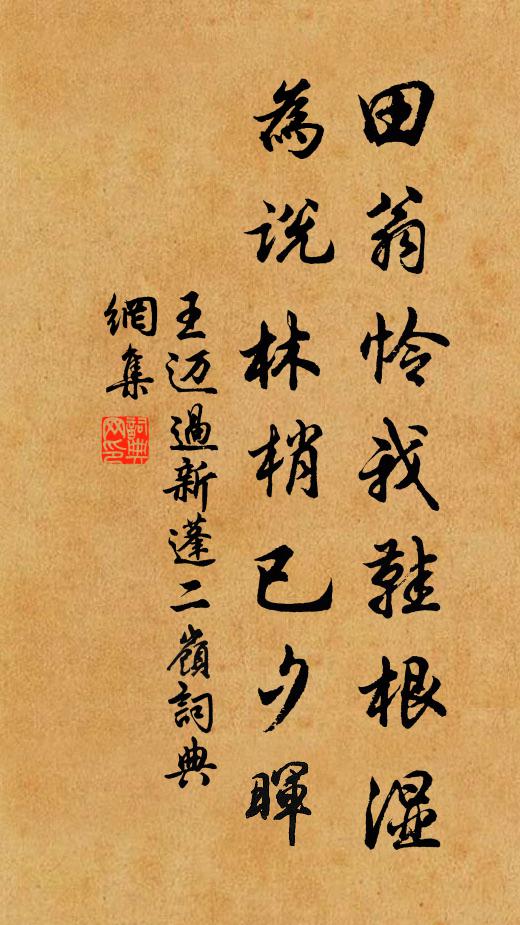 田翁怜我鞋根湿
為说林梢已夕暉
王迈過新蓬二嶺詞典
網集
詞典
网印